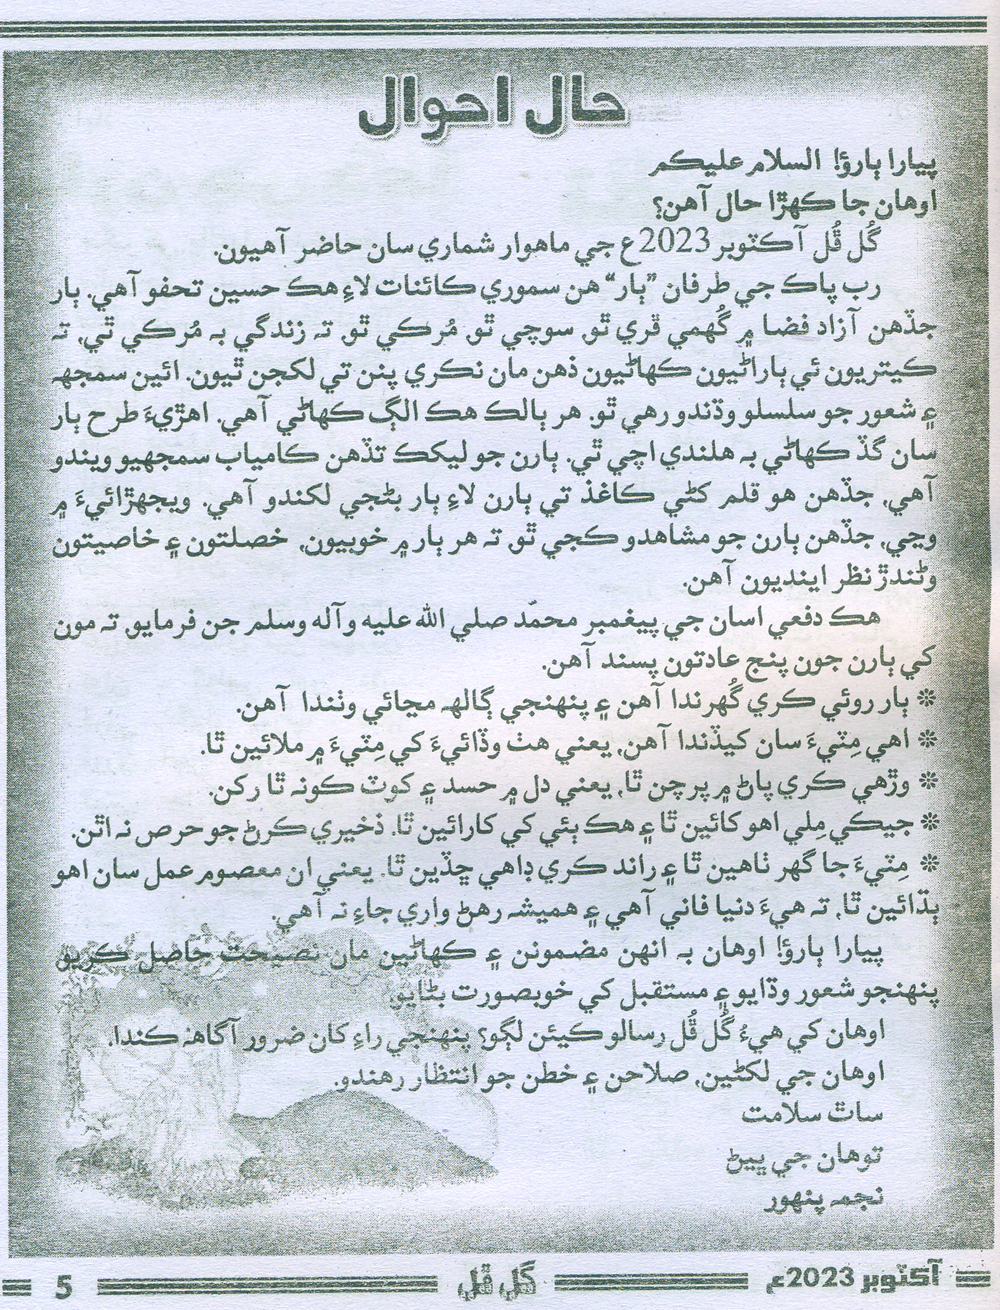 حال احوال
پيارا ٻارؤ! السلام عليڪم
اوهان جا ڪهڙا حال آهن؟
گُل ڦُل آڪٽوبر 2023ع جي ماهوار شماري سان حاضر آهيون.
رب پاڪ جي طرفان ”ٻار“ هن سموري ڪائنات لاءِ هڪ حسين تحفو آهي. ٻار
جڏهن آزاد فضا ۾ گُهمي ڦري ٿو، سوچي ٿو، مُرڪي ٿو، تہ زندگي بہ مُرڪي ٿي، تہ
ڪيتريون ئي ٻاراڻيون ڪهاڻيون ذهن مان نڪري پنن تي لکجن ٿيون. ائين سمجهہ
۽ شعور جو سلسلو وڌندو رهي ٿو. هر ٻالڪ هڪ الڳ ڪهاڻي آهي. اهڙيءَ طرح ٻار
سان گڏ ڪهاڻي بہ هلندي اچي ٿي. ٻارن جو ليکڪ تڏهن ڪامياب سمجهيو ويندو
آهي، جڏهن هو قلم کڻي ڪاغذ تي ٻارن لاءِ ٻار بڻجي لکندو آهي. ويجهڙائيءَ ۾
وڃي، جڏهن ٻارن جو مشاهدو ڪجي ٿو، تہ هر ٻار ۾ خوبيون، خصلتون ۽ خاصيتون
وڻندڙ نظر اينديون آهن.
هڪ دفعي اسان جي پيغمبر محمّد صلي الله عليه وآله وسلم جن فرمايو، تہ مون
کي ٻارن جون پنج عادتون پسند آهن.
❊ ٻار روئي ڪري گُهرندا آهن ۽ پنهنجي ڳالهہ مڃائي وٺندا آهن.
❊ اهي مِٽيءَ سان کيڏندا آهن، يعني هٺ وڏائيءَ کي مِٽيءَ ۾ ملائين ٿا.
❊ وڙهي ڪري پاڻ ۾ پرچن ٿا، يعني دل ۾ حسد ۽ کوٽ ڪونہ ٿا رکن.
❊ جيڪي مِلي اهو کائين ٿا ۽ هڪ ٻئي کي کارائين ٿا، ذخيري ڪرڻ جو حرص نہ اٿن.
❊ مِٽيءَ جا گهر ٺاهين ٿا ۽ راند ڪري ڊاهي ڇڏين ٿا. يعني ان معصوم عمل سان اهو
ٻڌائين ٿا، تہ هيءَ دنيا فاني آهي ۽ هميشہ رهڻ واري جاءِ نہ آهي.
پيارا ٻارؤ! اوهان بہ انهن مضمونن ۽ ڪهاڻين مان نصيحت حاصل ڪريو،
پنهنجو شعور وڌايو ۽ مستقبل کي خوبصورت بڻايو.
اوهان کي هيءُ گُل ڦُل رسالو ڪيئن لڳو؟ پنهنجي راءِ کان ضرور آگاهہ ڪندا.
اوهان جي لکڻين، صلاحن ۽ خطن جو انتظار رهندو.
ساٿ سلامت
توهان جي ڀيڻ
نجمہ پنهور
آڪٽوبر 2023ع
گل ڦل
5